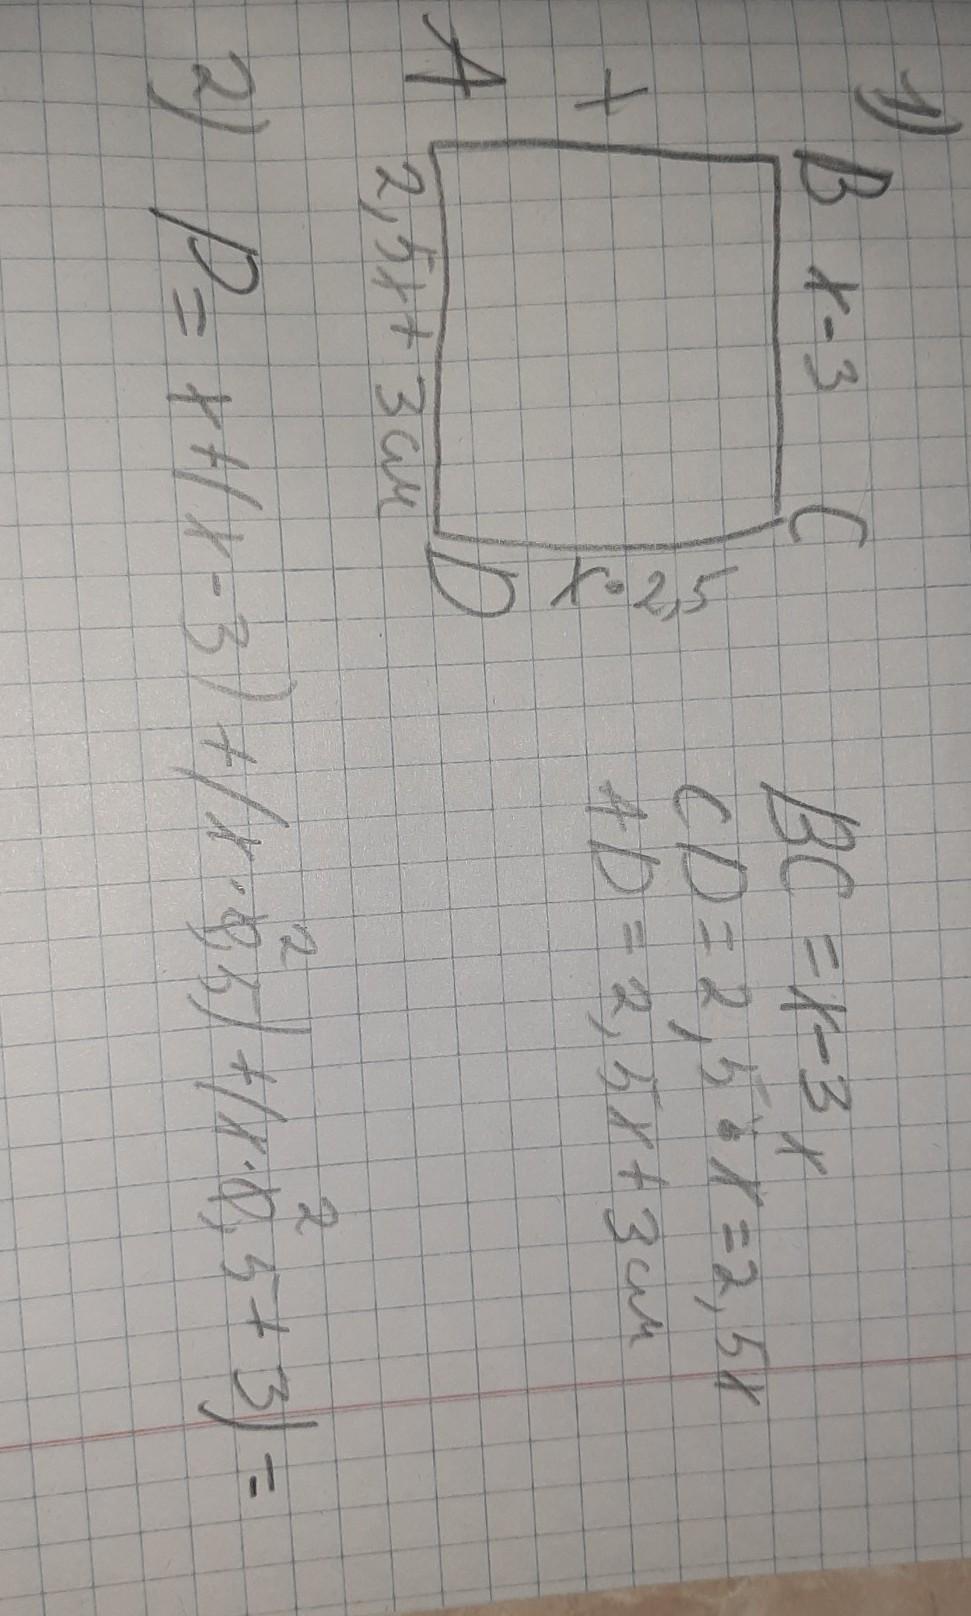 1)
B x-3 C
x
x·2,5
A D
2,5x+3см
BC = x-3
x
CD = 2,5·x = 2,5x
AD = 2,5x+3см
2) P = x+(x-3)+(x·2,5)+(x·2,5+3)=